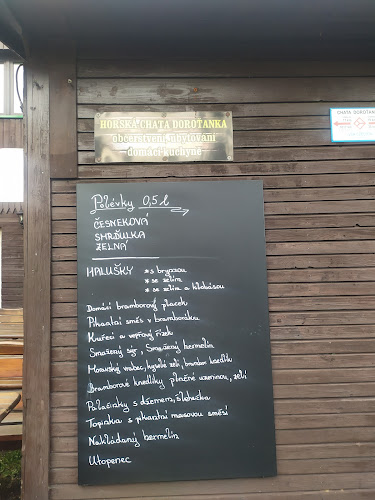 HORSKÁ CHATA DOROTANKA
občerstvení, ubytování
domácí kuchyně
CHATA DOROTANKA
Polévky 0,5 l
ČESNEKOVÁ
SMRĎULKA
ZELNÁ
HALUŠKY * s bryzou
* se zelím
* se zelím a klobásou
Domácí bramborový placek
Pikantní směs v bramboráku
Kuřecí a vepřový řízek
Smažený sýr, Smažený hermelín
Moravský vrabec, kyselé zelí, brambor. knedlík
Bramborové knedlíky plněné uzeninou, zelí
Palačinky s džemem, šlehačka
Topinka s pikantní masovou směsí
Nakládaný hermelín
Utopenec